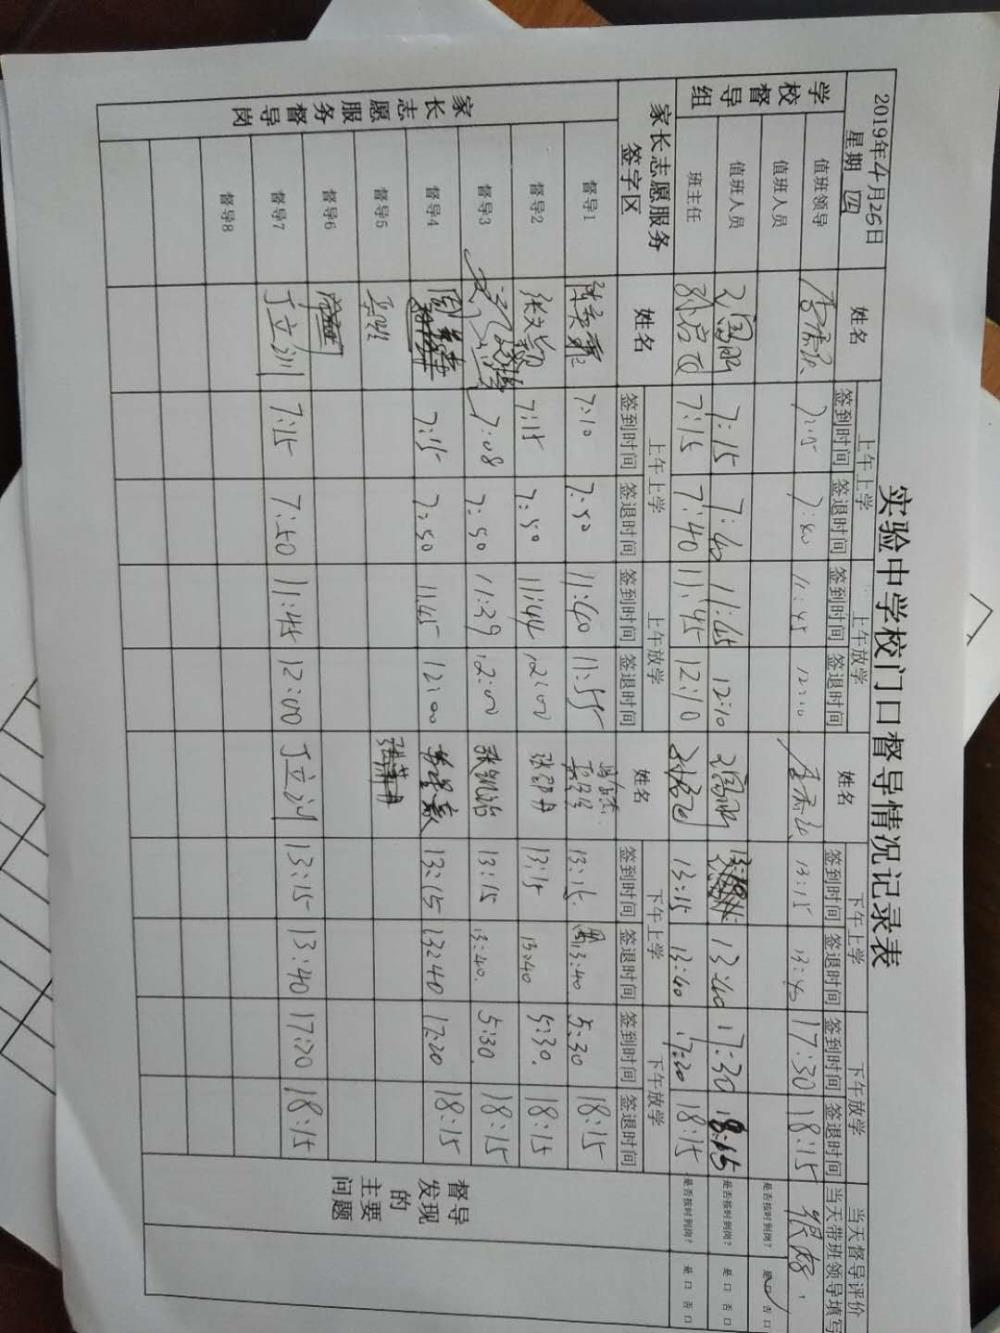 实验中学校门口督导情况记录表
2019年4月25日
星期 四
姓名
上午上学
上午放学
姓名
下午上学
下午放学
当天督导评价
当天带班领导填写
签到时间 签退时间 签到时间 签退时间 签到时间 签退时间 签到时间 签退时间
学校督导组
值班领导 7:15 7:40 11:45 12:10 13:15 13:40 17:30 18:15 很好
值班人员 是否按时到岗? 是口 否口
值班人员 7:15 7:40 11:45 12:10 13:40 17:30 18:15 是否按时到岗? 是口 否口
班主任 7:15 7:40 11:45 12:10 13:15 13:40 17:20 18:15 是否按时到岗? 是口 否口
家长志愿服务
签字区
姓名
上午上学
上午放学
姓名
下午上学
下午放学
签到时间 签退时间 签到时间 签退时间 签到时间 签退时间 签到时间 签退时间
督导发现的主要问题
家长志愿服务督导岗
督导1 7:10 7:50 11:40 11:55 13:15 13:40 5:30 18:15
督导2 7:15 7:50 11:44 12:00 13:15 13:40 5:30 18:15
督导3 7:08 7:50 11:39 12:00 张凯皓 13:15 13:40 5:30 18:15
督导4 7:15 7:50 11:45 12:00 13:15 13:40 17:20 18:15
督导5
督导6
督导7 丁立洲 7:15 7:50 11:45 12:00 丁立洲 13:15 13:40 17:20 18:15
督导8